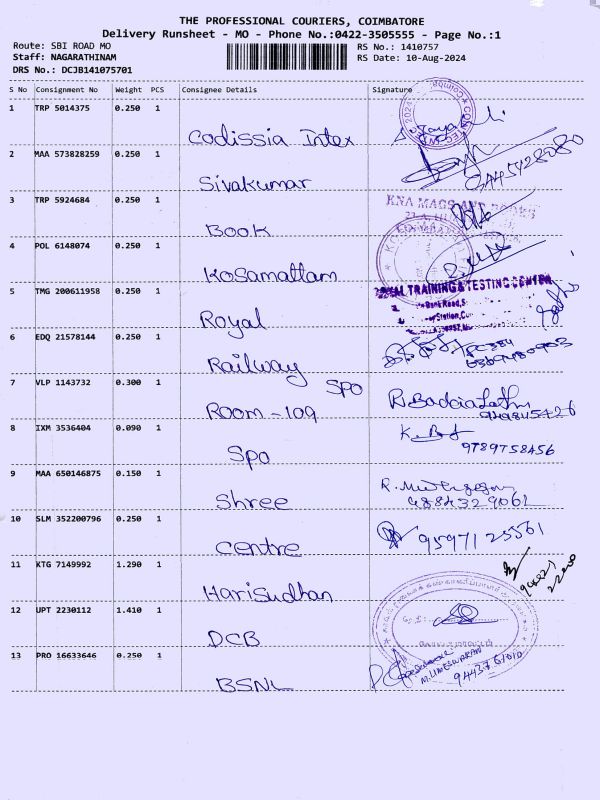 THE PROFESSIONAL COURIERS, COIMBATORE
Delivery Runsheet - MO - Phone No.:0422-3505555 - Page No.:1
Route: SBI ROAD MO
RS No.: 1410757
Staff: NAGARATHINAM
RS Date: 10-Aug-2024
DRS No.: DCJB141075701
S No Consignment No Weight PCS Consignee Details Signature
1 TRP 5014375 0.250 1 Codissia Intex
2 MAA 573828259 0.250 1 Sivakumar
3 TRP 5924684 0.250 1 Book KNA MAGS AND BOOKS
4 POL 6148074 0.250 1 Kosamattam
5 TMG 200611958 0.250 1 Royal ROYAL TRAINING & TESTING CENTER
6 EDQ 21578144 0.250 1 Railway
7 VLP 1143732 0.300 1 Room-109 SPO
8 IXM 3536404 0.090 1 Spo 9789758456
9 MAA 650146875 0.150 1 Shree 4884329061
10 SLM 352200796 0.250 1 Centre 9597125561
11 KTG 7149992 1.290 1 Harisudhan
12 UPT 2230112 1.410 1 DCB
13 PRO 16633646 0.250 1 BSNL